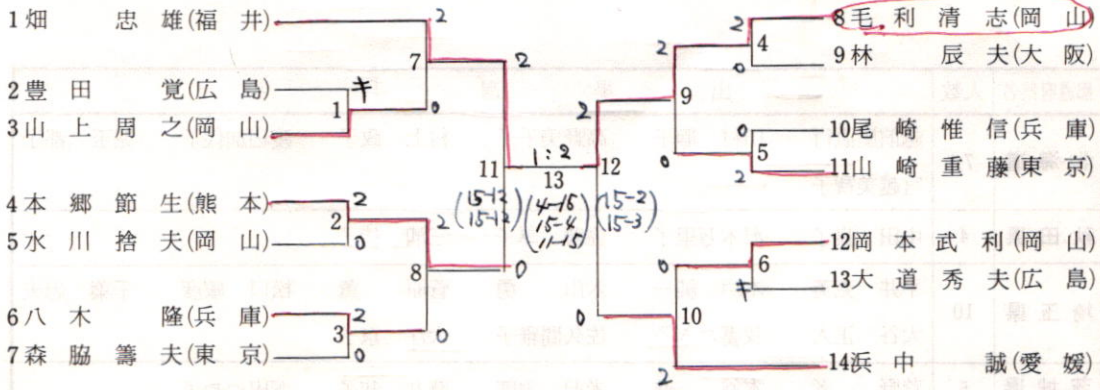 1畑 忠 雄(福 井)
2豊 田 覚(広 島)
3山 上 周 之(岡 山)
4本 郷 節 生(熊 本)
5水 川 捨 夫(岡 山)
6八 木 隆(兵 庫)
7森 脇 籌 夫(東 京)
2
7
キ
1
0
2
2
0
8
2
3
0
0
2
11
2
0
1:2
13
(15-12
15-12)
(4-15
15-4
11-15)
(15-2
15-3)
2
12
0
2
9
0
2
4
0
0
5
2
0
10
2
6
キ
8毛 利 清 志(岡 山)
9林 辰 夫(大 阪)
10尾 崎 惟 信(兵 庫)
11山 崎 重 藤(東 京)
12岡 本 武 利(岡 山)
13大 道 秀 夫(広 島)
14浜 中 誠(愛 媛)